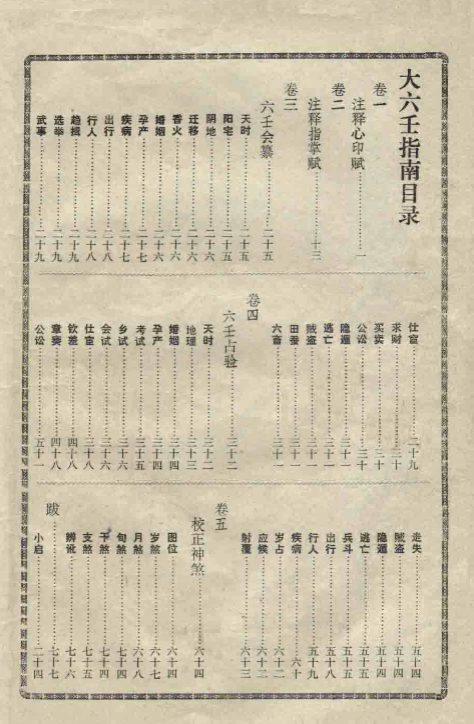 大六壬指南目录
卷一
注释心印赋……一
卷二
注释指掌赋……十三
卷三
六壬会纂……二十五
天时……二十五
阳宅……二十五
阴地……二十六
迁移……二十六
香火……二十六
婚姻……二十六
孕产……二十七
疾病……二十七
出行……二十八
行人……二十八
趋谒……二十九
选举……二十九
武事……二十九
仕宦……二十九
求财……三十
买卖……三十
公讼……三十
隐遁……三十一
逃亡……三十一
贼盗……三十一
田蚕……三十一
六畜……三十一
卷四
六壬占验……三十二
天时……三十二
地理……三十三
婚姻……三十四
孕产……三十四
考试……三十五
乡试……三十六
会试……三十六
仕宦……三十八
钦差……四十八
章奏……四十八
公讼……五十一
走失……五十四
贼盗……五十四
隐遁……五十四
逃亡……五十五
兵斗……五十五
出行……五十八
行人……五十九
疾病……六十
岁占……六十二
应候……六十二
射覆……六十三
卷五
校正神煞……六十四
图位……六十四
岁煞……六十七
月煞……六十八
旬煞……七十四
干煞……七十四
支煞……七十五
辨讹……七十六
跋……七十七
小启……二十四